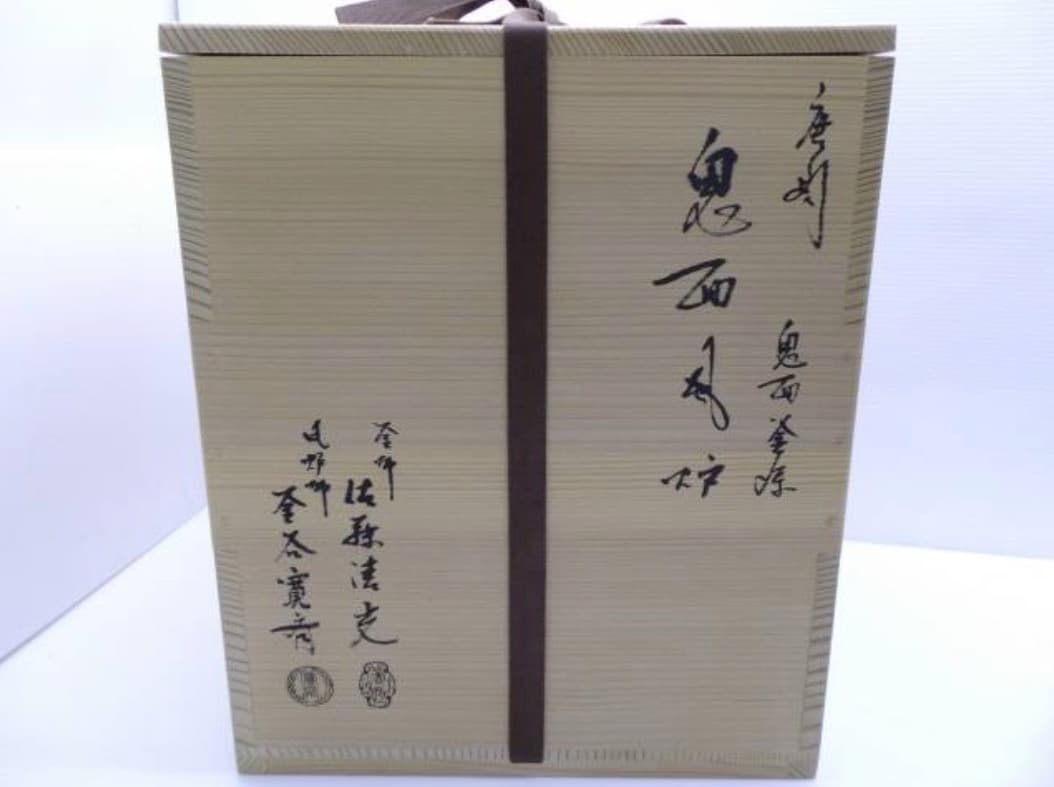 唐銅
鬼面風炉
鬼面釜添
釜師
佐藤清光
風炉師
釜谷寛斎